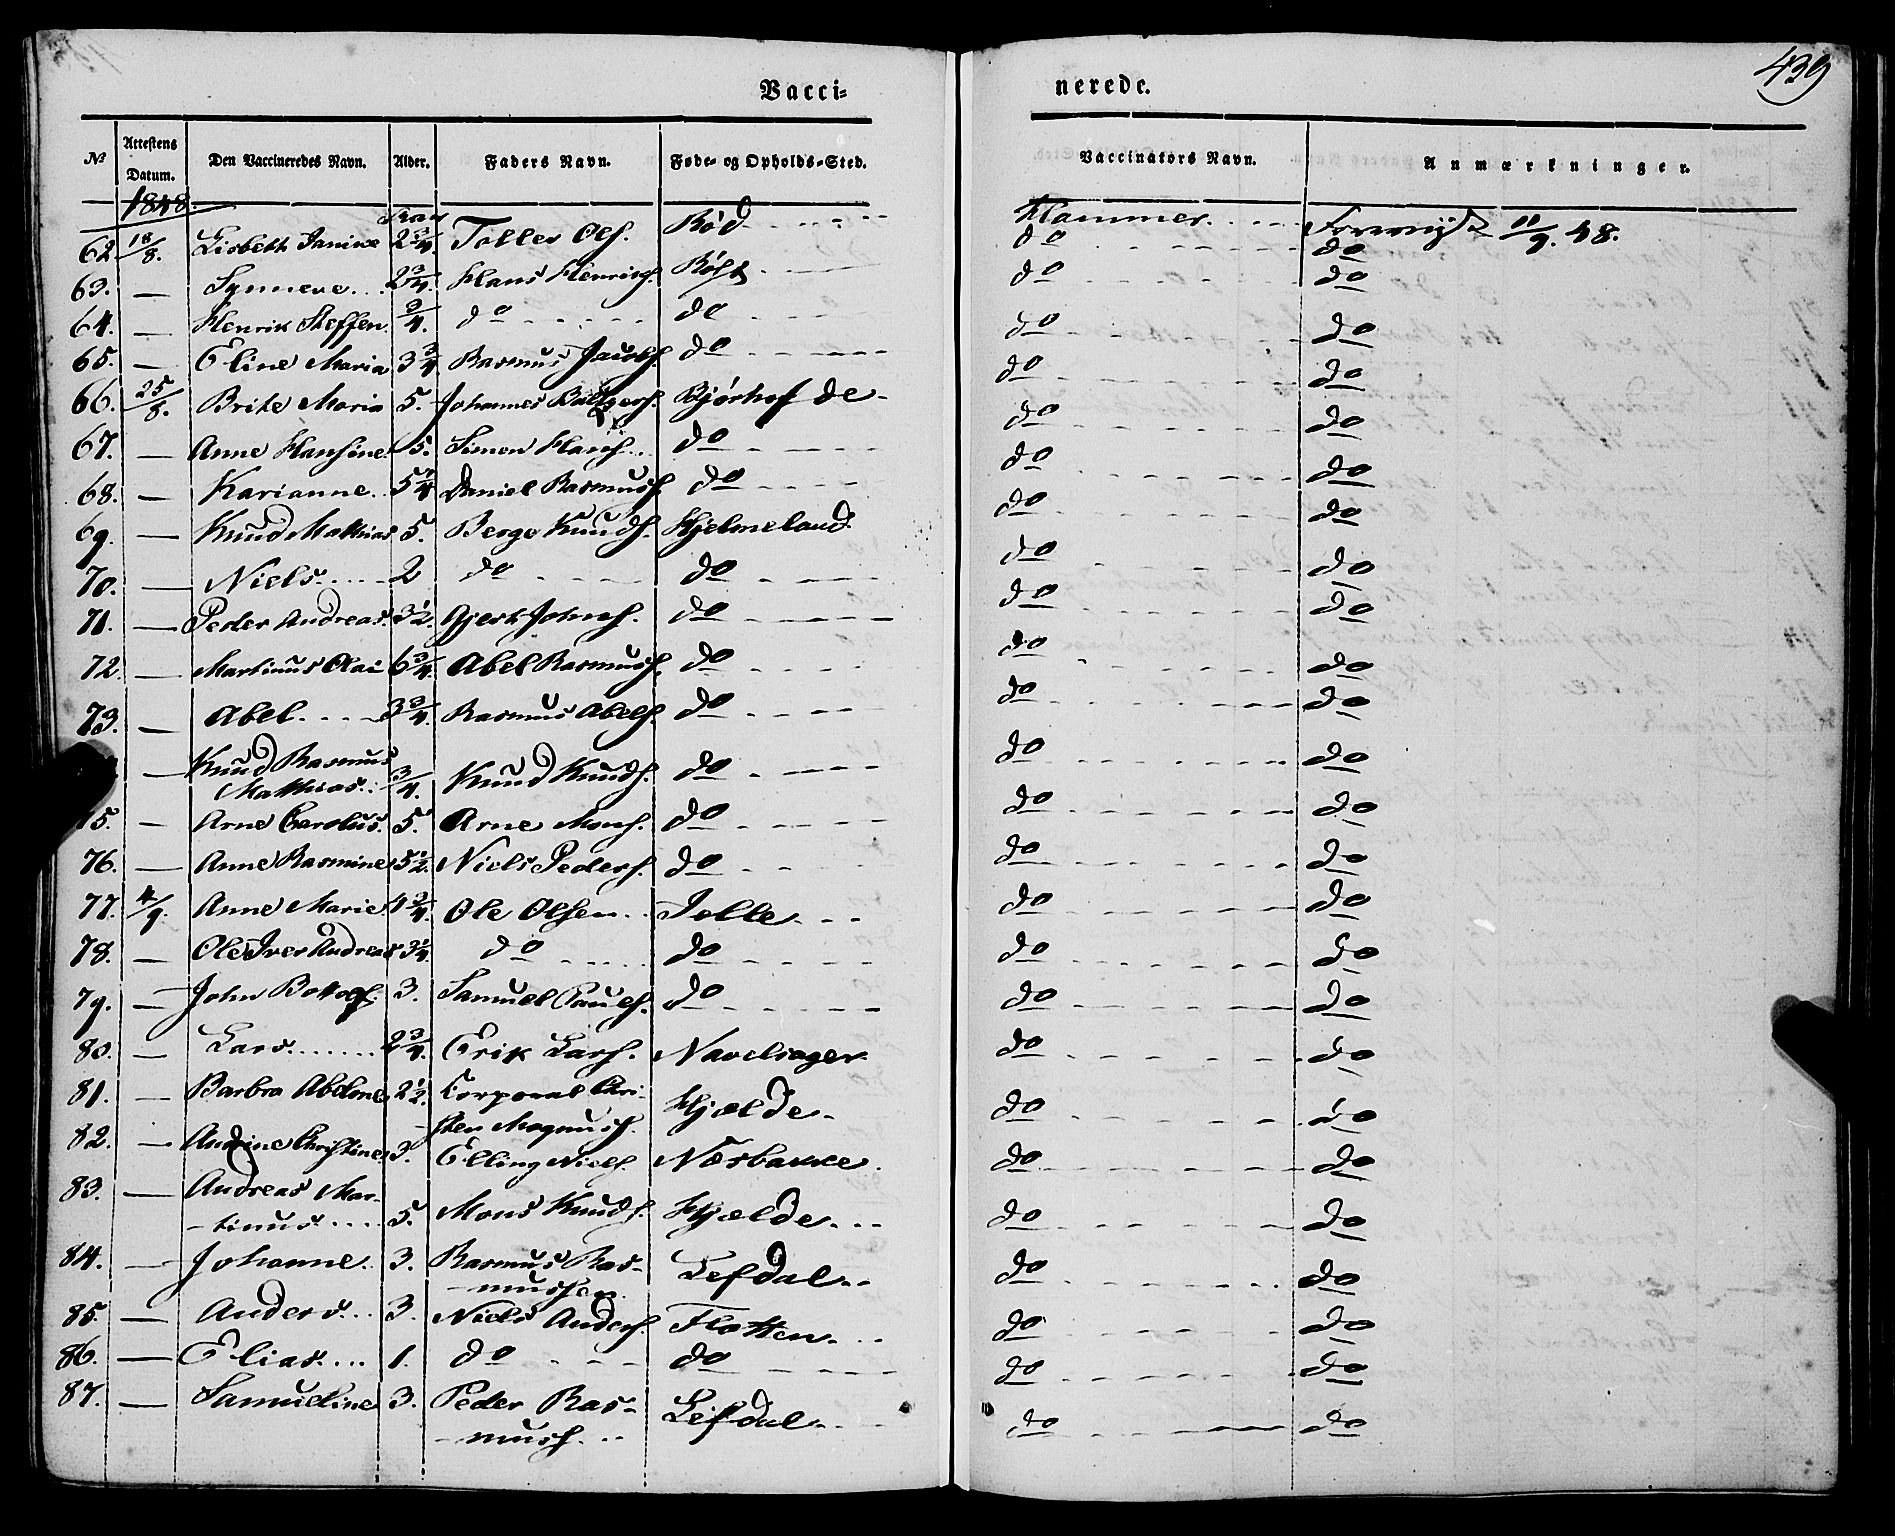 439
Vacci=
nerede.
№ Attestens Datum. Den Vaccineredes Navn. Alder. Faders Navn. Føde- og Opholds-Sted. Vaccinators Navn. Anmærkninger.
1848.
62. 18/8. Lisbeth Janine 2 3/4. Tolles Ols. Rød Hammer. Foreviist 11/9. 48.
do do
63. — Synneve 2 3/4. Hans Henrichs. do do
64. — Henrik Steffen 3/4. do do do do
65. — Eline Maria 3 3/4. Rasmus Jacobs. do do do
66. 25/8. Brite Maria 5. Johannes Bøltgers. do do
67. — Anne Hansine 5. Simon Hans. do do do
68. — Karianne Daniel Rasmuss. do do do
69. — Knud Mathias 5. Berge Knuds. Hjelmeland do do
70. — Niels 2 do do do do
71. — Peder Andreas 3 1/2. Gjert Johns. do do do
72. — Martinus Olai 6 3/4. Abel Rasmuss. do do do
73. — Abel 3 3/4. Rasmus Abels. do do do
— Knud Rasmus
Mathias. 3/4. Knud Knuds. do do do
75. — Arne Carolus. 5. Arne Mons. do do do
76. — Anne Rasmine 5 1/2. Niels Peders. do do do
77. 4/9. Anne Marie 4 3/4. Ole Olsen do do
78. — Ole Iver Andreas do do do do
79. — John Bottolf. 3. Samuel Pauls. do do do
80. — Lars 2 3/4. Erik Lars. Navelsager do do
81. — Barbra Abelone 2 1/2. Corporal Chri-
sten Magnuss. Hjælde do do
82. — Andrine Christine 3. Elling Niels. Nosbakke do do
83. — Andreas Mar-
-tinus 5. Mons Knuds. Hjælde do do
84. — Johanne 3. Rasmus Ras-
-mussen Lefdal do do
85. — Anders 3. Niels Anders. Flotten do do
86. — Elias 1. do do do do
87. — Samueline 3. Peder Ras-
-muss. Lefdal do do